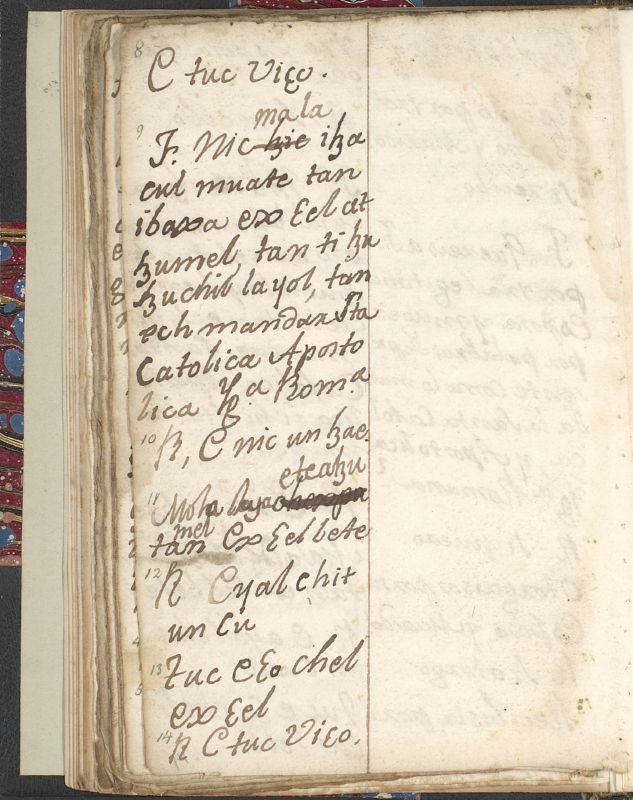 8
C tuc Viɛo.
mala
9 F. Nic ꜩic iꜩa
cul muate tan
ibaxa ex Eel at
ꜩumel, tan ti ꜩu
ꜩuchib la yol, tan
ech mandar Sta
Catolica Aposto
lica Yg.a Rom.a
10 R, C nic un ꜩae.
eteaꜩu
11 Mola laya
mel
tan Ex Eel bete
12 R Cyal chit
un cu
13 tuc eɛo chel
ex Eel
14 R C tuc Viɛo.